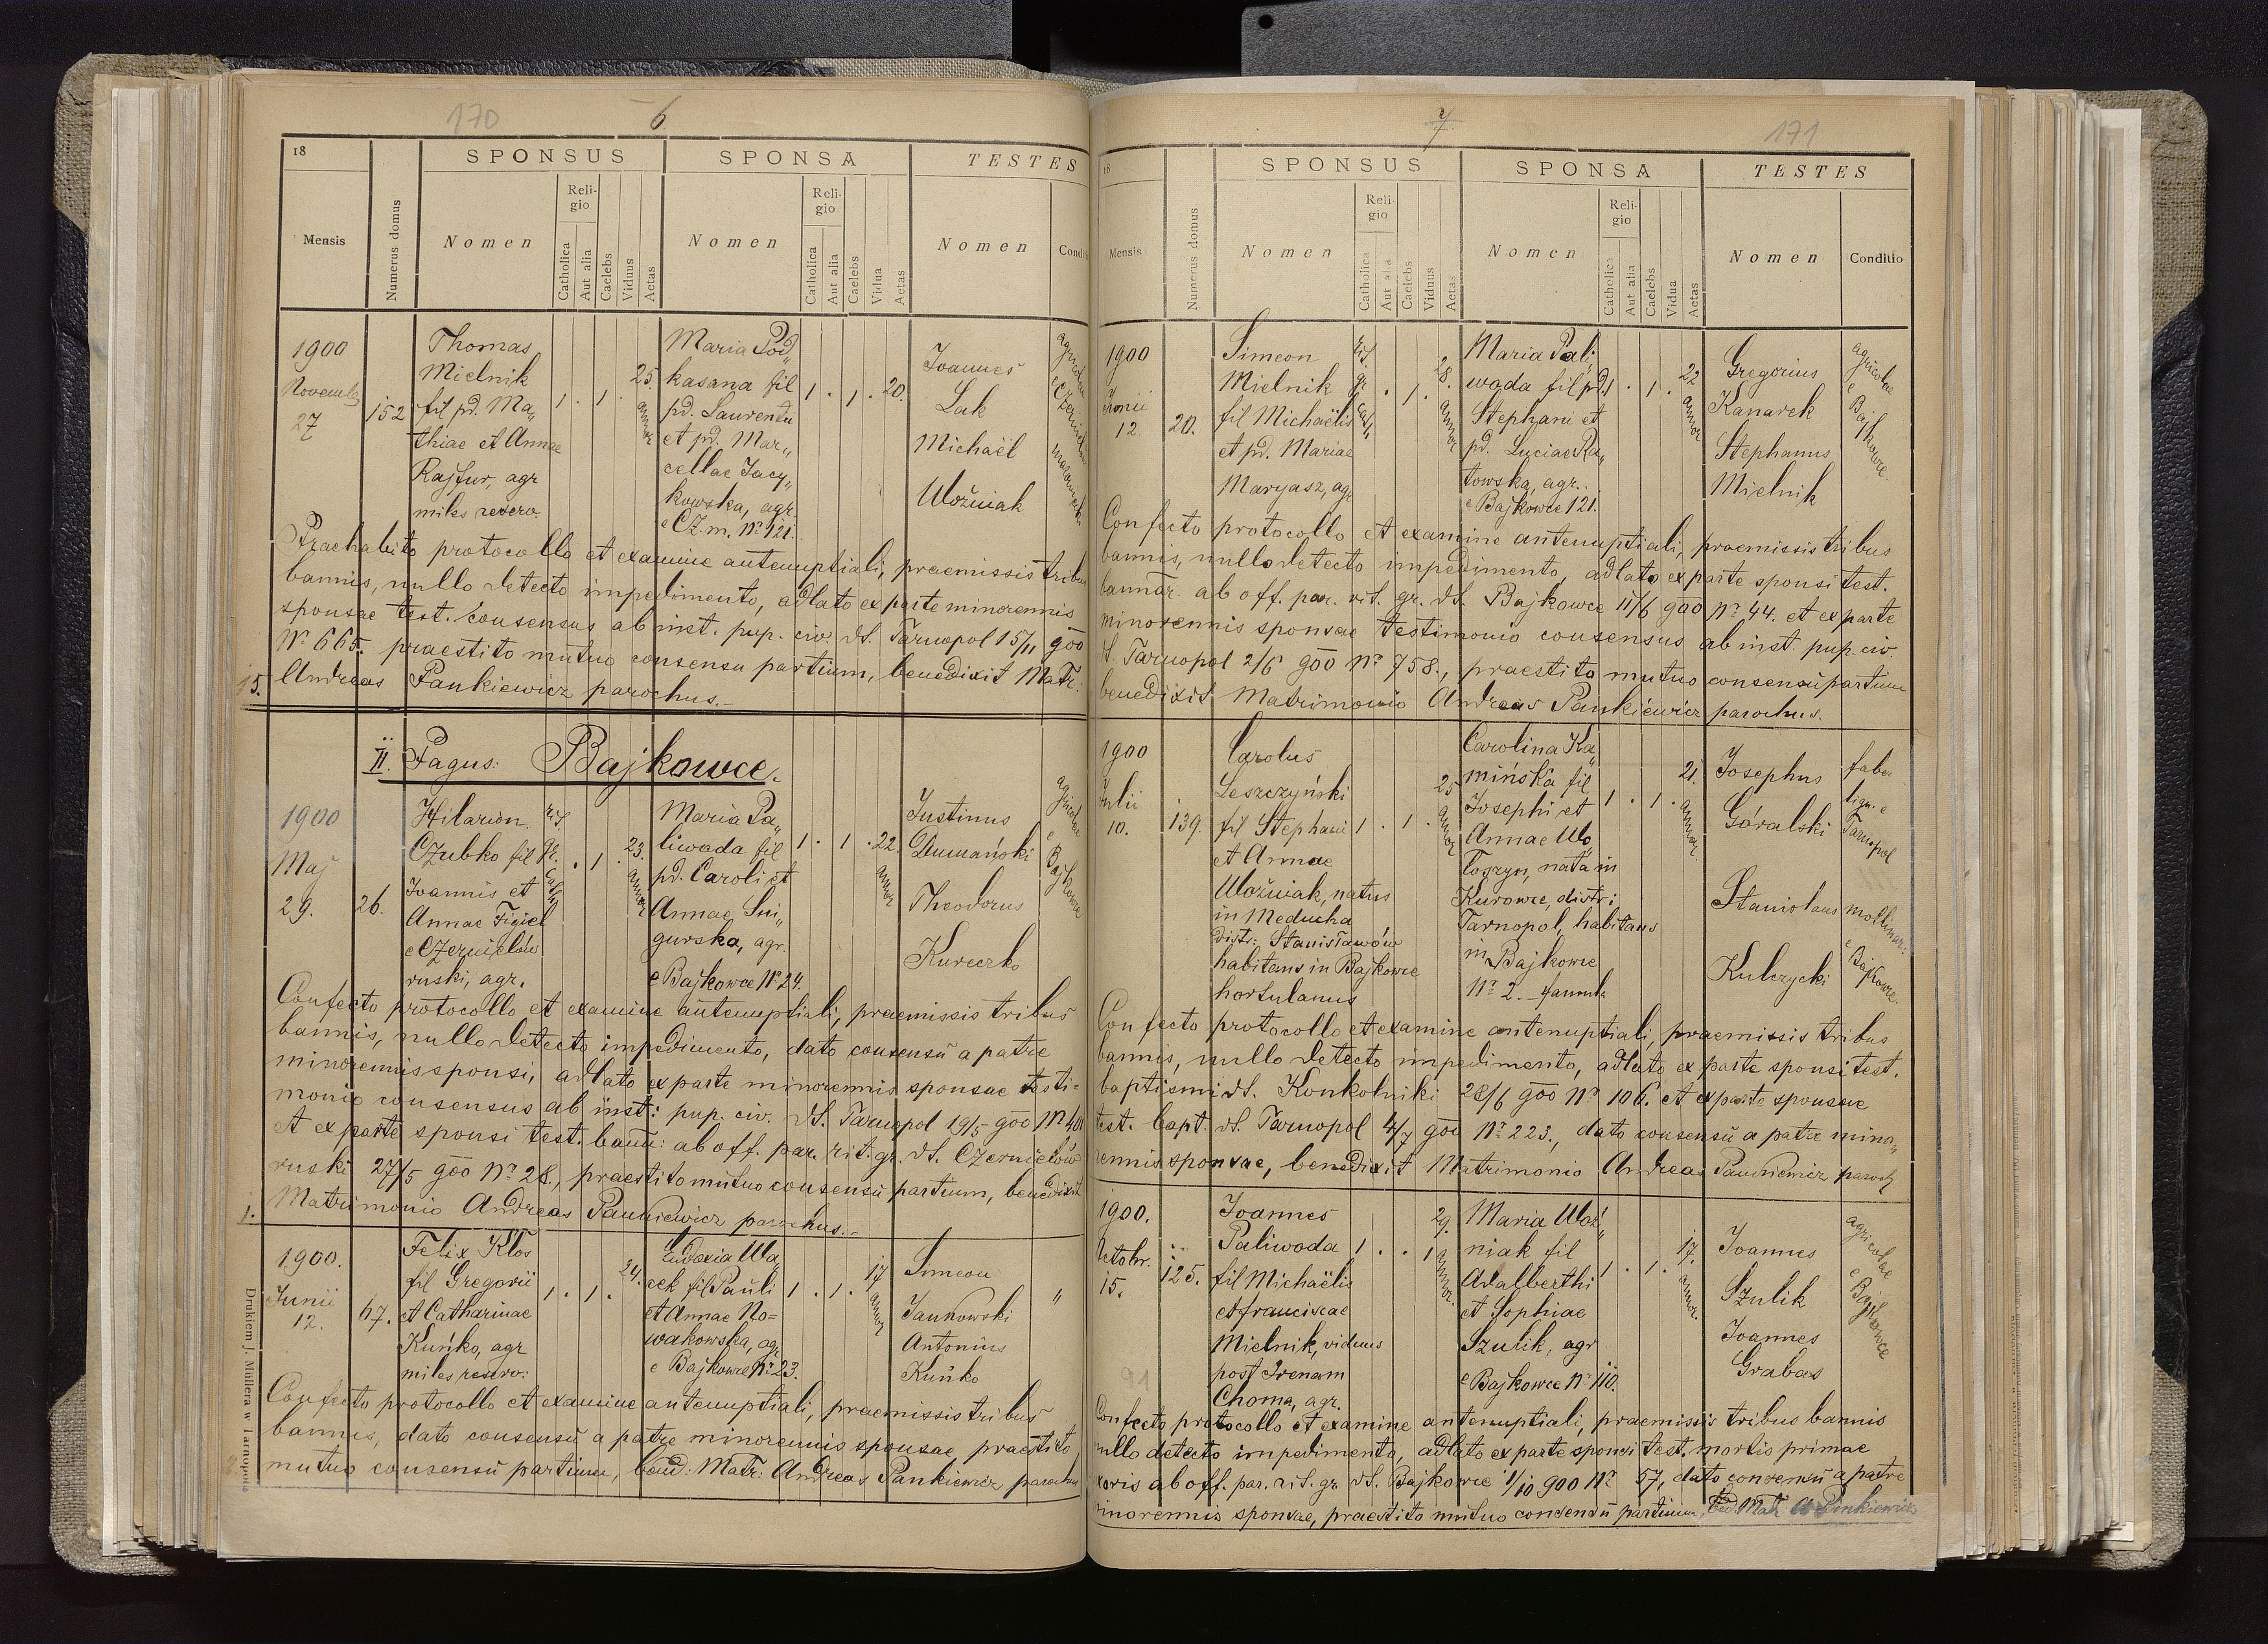 170
6
18
Mensis
Numerus domus
SPONSUS
Nomen
Reli-
gio
Catholica
Aut alia
Caelebs
Viduus
Aetas
SPONSA
Nomen
Reli-
gio
Catholica
Aut alia
Caelebs
Vidua
Aetas
TESTES
Nomen
Condi
1900
Novemb
27
152
Thomas
Mielnik
fil pd. Ma„
thiae et Annae
Rajfur, agr
miles reserv.
1 . 1 .
25.
annor
Maria Pod„
kasana fil
pd. Laurentii
et pd. Mar„
cellae Jacy„
kowska, agr.
e Cz. m. Nº 121.
1 . 1 . 20.
Joannes
Luk
Michaël
Woźniak
agricolae
Praehabito protocollo et examine antenuptiali, praemissis tribus
bannis, nullo detecto impedimento, adlato ex parte minorennis
sponsae test. consensus ab inst. pup. civ. dt. Tarnopol 15/11 900
Nº 665. praestito mutuo consensu partium, benedixit Matr.
15. Andreas Pankiewicz parochus.–
II. Pagus: Bajkowce.
1900
Maj
29.
26.
Hilarion
Czubko fil
Joannis et
Annae Figiel
e Czernielów
ruski, agr.
rit.
gr.
cath
. 1 .
23.
annor
Maria Pa„
liwoda fil
pd. Caroli et
Annae Sni„
gurska, agr.
e Bajkowce Nº 24.
1 . 1 . 22.
annor
Justinus
Dumański
Theodorus
Kureczko
agricolae
e
Bajkowce
Confecto protocollo et examine antenuptiali, praemissis tribus
bannis, nullo detecto impedimento, dato consensu a patre
minorennis sponsi, adlato ex parte minorennis sponsae testi=
monio consensus ab inst: pup. civ. dt. Tarnopol 19/5 900
et ex parte sponsi test. bann: ab off. par. rit. gr. dt. Czernielów
ruski 27/5 900 Nº 28., praestito mutuo consensu partium, benedixit
1. Matrimonio Andreas Pankiewicz parochus.–
1900.
Junii
12.
67.
Felix Klos
fil Gregorii
et Catharinae
Kuńko, agr
miles reserv:
1 . 1 .
24.
Eudoxia Wa„
cek fil Pauli
et Annae No=
wakowska, agr
e Bajkowce Nº 23.
1 . 1 .
17
annor
Simeon
Jankowski
Antonius
Kuńko
"
Confecto protocollo et examine antenuptiali, praemissis tribus
bannis, dato consensu a patre minorennis sponsae, praestito
mutuo consensu partium, bened: Matr: Andreas Pankiewicz parochus
Drukiem J. Müllera w Tarnopolu
7
171
18
Mensis
Numerus domus
SPONSUS
Nomen
Reli-
gio
Catholica
Aut alia
Caelebs
Viduus
Aetas
SPONSA
Nomen
Reli-
gio
Catholica
Aut alia
Caelebs
Vidua
Aetas
TESTES
Nomen
Conditio
1900
Junii
12
20.
Simeon
Mielnik
fil Michaëlis
et pd. Mariae
Maryasz, agr
rit.
gr
cat„
. 1 .
28.
annor
Maria Pali„
woda fil pd.
Stephani et
pd. Luciae Ra„
towska, agr.
e Bajkowce 121.
1 . 1 .
22
annor
Gregorius
Kanarek
Stephanus
Mielnik
agricolae
e
Bajkowce
Confecto protocollo et examine antenuptiali, praemissis tribus
bannis, nullo detecto impedimento, adlato ex parte sponsi test.
bannor. ab off. par. rit. gr. dt. Bajkowce 11/6 900 Nº 44. et ex parte
minorennis sponsae testimonio consensus ab inst. pup. civ.
dt. Tarnopol 2/6 900 Nº 758., praestito mutuo consensu partium
benedixit Matrimonio Andreas Pankiewicz parochus.
1900
Julii
10.
139.
Carolus
Leszczyński
fil Stephani
et Annae
Woźniak, natus
in Meducha
distr: Stanisławów
habitans in Bajkowce
hortulanus
1 . 1 .
25
annor
Carolina Ka„
mińska fil
Josephi et
Annae Wo„
łoszyn, nata in
Kurowce, distr:
Tarnopol, habitans
in Bajkowce
Nº 2.
1 . 1 .
21.
annor.
Josephus
Góralski
Stanislaus
Kulczycki
faber
lign. e
Tarnopol
mollinar:
e
Bajkowce.
Confecto protocollo et examine antenuptiali, praemissis tribus
bannis, nullo detecto impedimento, adlato ex parte sponsi test.
baptismi dt. Konkolniki 28/6 900 Nº 106. et ex parte sponsae
test. bapt. dt. Tarnopol 4/7 900 Nº 223., dato consensu a patre mino„
rennis sponsae, benedixit Matrimonio Andreas Pankiewicz paroch
1900.
Octobr.
15.
125.
Joannes
Paliwoda
fil Michaëlis
et Franciscae
Mielnik, viduus
post Irenam
Choma, agr.
1 . . 1
29.
annor.
Maria Woź„
niak fil
Adalberthi
et Sophiae
Szulik, agr
e Bajkowce Nº 110.
1 . 1 .
17.
annor.
Joannes
Szulik
Joannes
Grabas
agricolae
e Bajkowce
91
Confecto protocollo et examine antenuptiali, praemissis tribus bannis
nullo detecto impedimento, adlato ex parte sponsi test. mortis primae
uxoris ab off. par. rit. gr. dt. Bajkowce 1/10 900 Nº 57, dato consensu a patre
minorennis sponsae, praestito mutuo consensu partium, bened. Matr. A. Pankiewicz